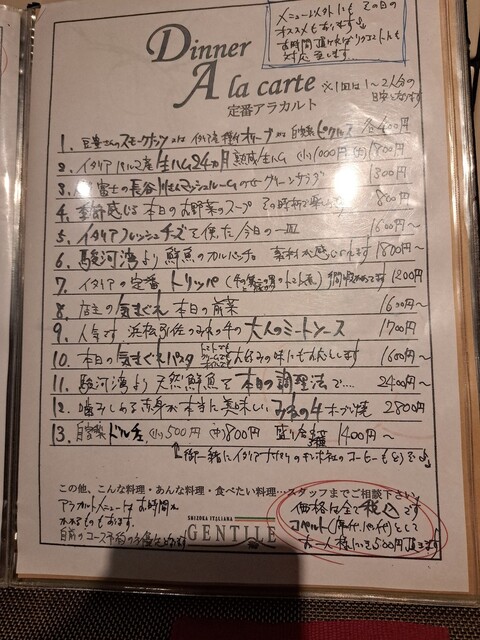 メニュー以外にも その日の
オススメもあります
お時間頂ければリクエストにも
対応致します
Dinner
A la carte
※1皿は1〜2人分の
定番アラカルト
1. スモークハツ 又は イタリア産 オリーブ 自家製ピクルス 各400円
2. イタリア パルマ産 生ハム24ヵ月熟成生ハム (小)1000円 1800円
3. 富士の長谷川さんマッシュルームの グリーンサラダ 1300円
4. 季節感じる 本日のお野菜のスープ 800円
5. イタリアフレッシュチーズで使った 今日の一皿 1600円〜
6. 駿河湾より鮮魚のカルパッチョ 1800円〜
7. イタリアの定番 トリッパ 1200円
8. 店主の気まぐれ 本日の前菜 1600円〜
9. 人気です 浜松 みねの牛の 大人のミートソース 1700円
10. 本日の気まぐれパスタ お好みの味にも対応します 1600円〜
11. 駿河湾より 天然鮮魚で 本日の調理法で… 2400円〜
12. 噛みしめる赤身が本当に美味しい みねの牛 オーブン焼 2800円
13. 自家製 ドルチェ (小)500円 (中)800円 盛り合わせ 1400円〜
御一緒にイタリア コーヒーもどうぞ
この他、こんな料理・あんな料理・食べたい料理…スタッフまでご相談下さい。
アラカルトメニューは お時間
かかるものもあります
SHIZUOKA ITALIANA
GENTILE
価格は全て税込です
コペルト(席代、パン代)として
お一人様につき500円頂きます